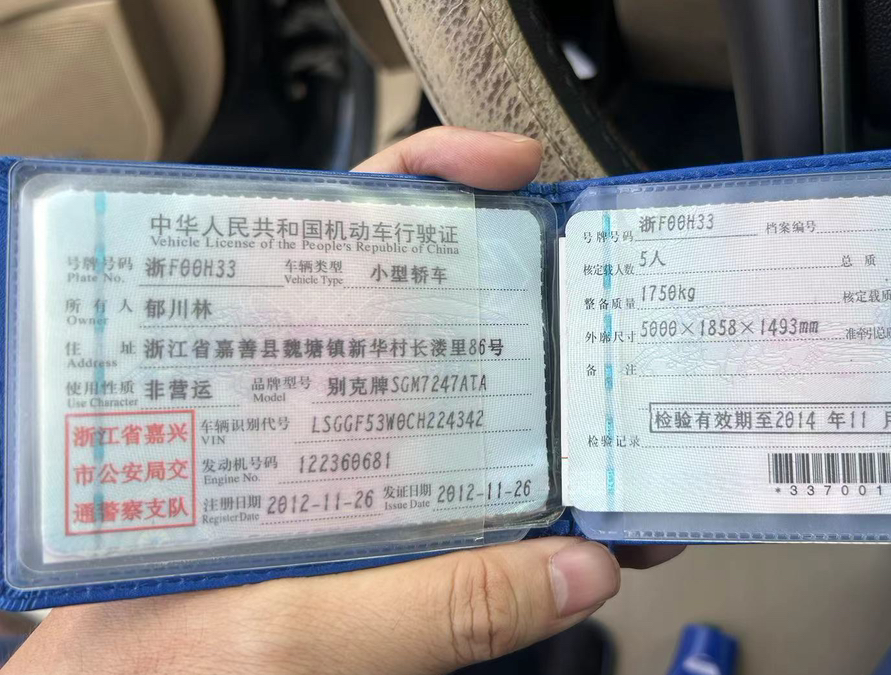 中华人民共和国机动车行驶证
Vehicle License of the People's Republic of China
号牌号码 浙F00H33 车辆类型 小型轿车
Plate No. Vehicle Type
所有人 郁川林
Owner
住址 浙江省嘉善县魏塘镇新华村长溇里86号
Address
使用性质 非营运 品牌型号 别克牌SGM7247ATA
Use Character Model
浙江省嘉兴
市公安局交
通警察支队
车辆识别代号 LSGGF53W0CH224342
VIN
发动机号码 122360681
Engine No.
注册日期 2012-11-26 发证日期 2012-11-26
Register Date Issue Date
号牌号码 浙F00H33 档案编号
核定载人数 5人 总质
整备质量 1750kg 核定载质
外廓尺寸 5000×1858×1493mm 准牵引总
备注
检验有效期至2014 年11
检验记录
*337001